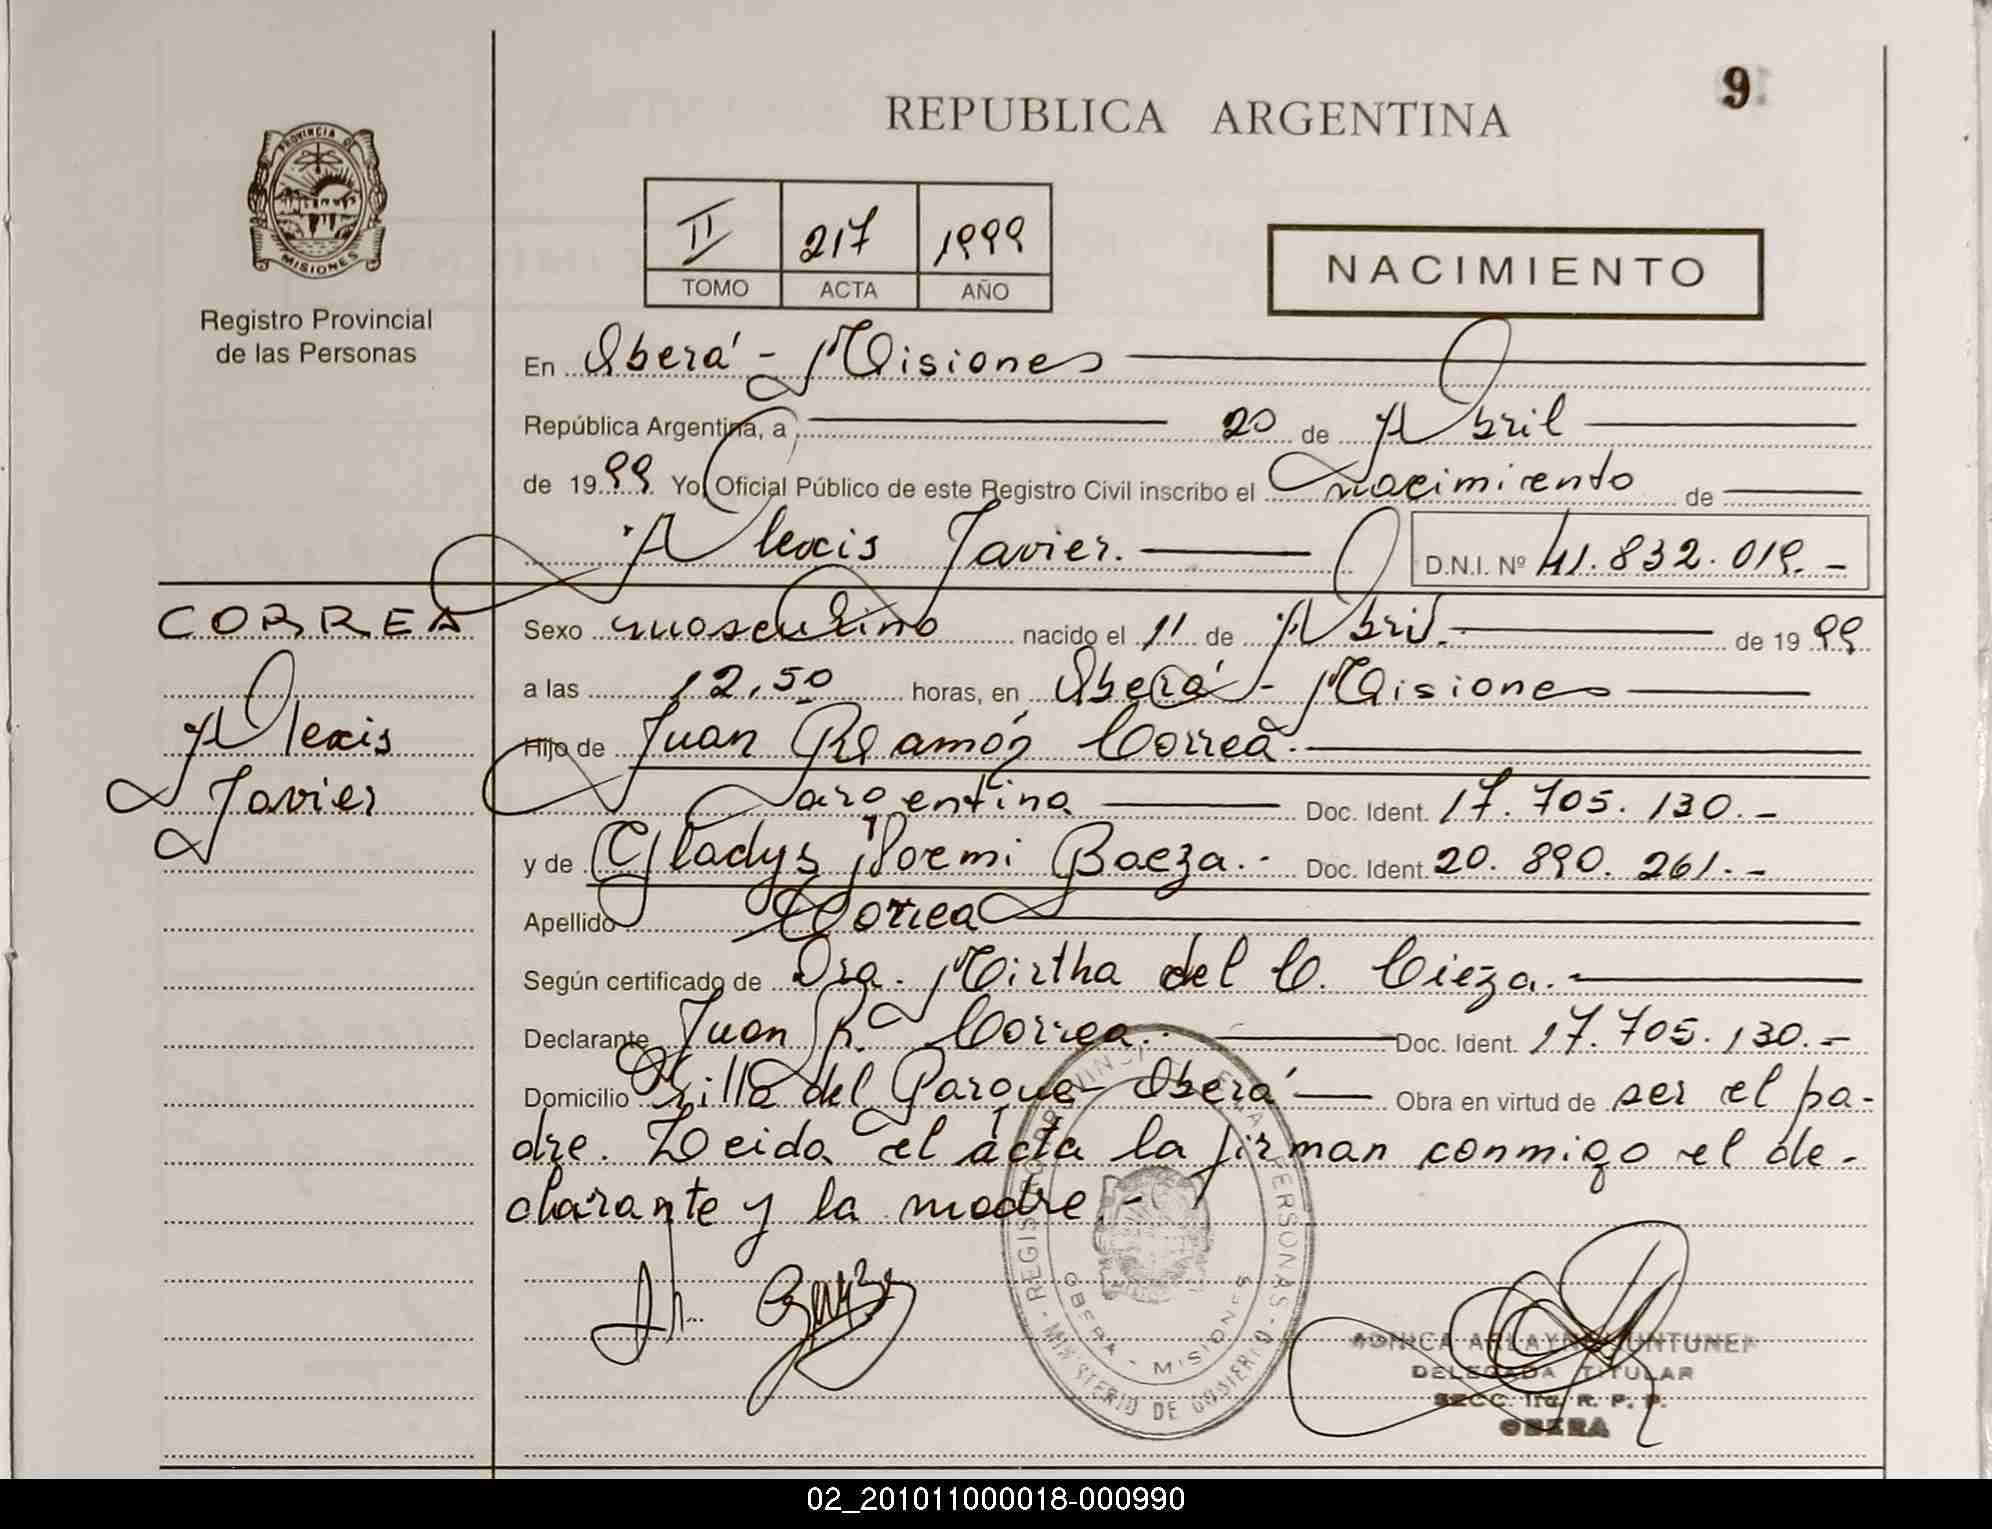 9
REPUBLICA ARGENTINA
PROVINCIA DE
MISIONES
II 217 1999
TOMO ACTA AÑO
NACIMIENTO
Registro Provincial
de las Personas
En Oberá - Misiones
República Argentina, a 20 de Abril
de 1999 Yo, Oficial Público de este Registro Civil inscribo el nacimiento de
Alexis Javier. D.N.I. Nº 41.832.019.-
CORREA
Alexis
Javier
Sexo masculino nacido el 11 de Abril. de 1999
a las 12,50 horas, en Oberá - Misiones
Hijo de Juan Ramón Correa.
argentina Doc. Ident. 17.705.130.-
y de Gladys Noemi Baeza.- Doc. Ident. 20.890.261.-
Apellido Correa
Según certificado de Dra. Mirtha del C. Cieza.-
Declarante Juan R. Correa.- Doc. Ident. 17.705.130.-
Domicilio Villa del Parque - Oberá Obra en virtud de ser el pa-
dre. Leida el acta la firman conmigo el de-
clarante y la madre.-
OBERA - MISIONES
MINISTERIO DE GOBIERNO
DELEGADA TITULAR
OBERA
02_201011000018-000990